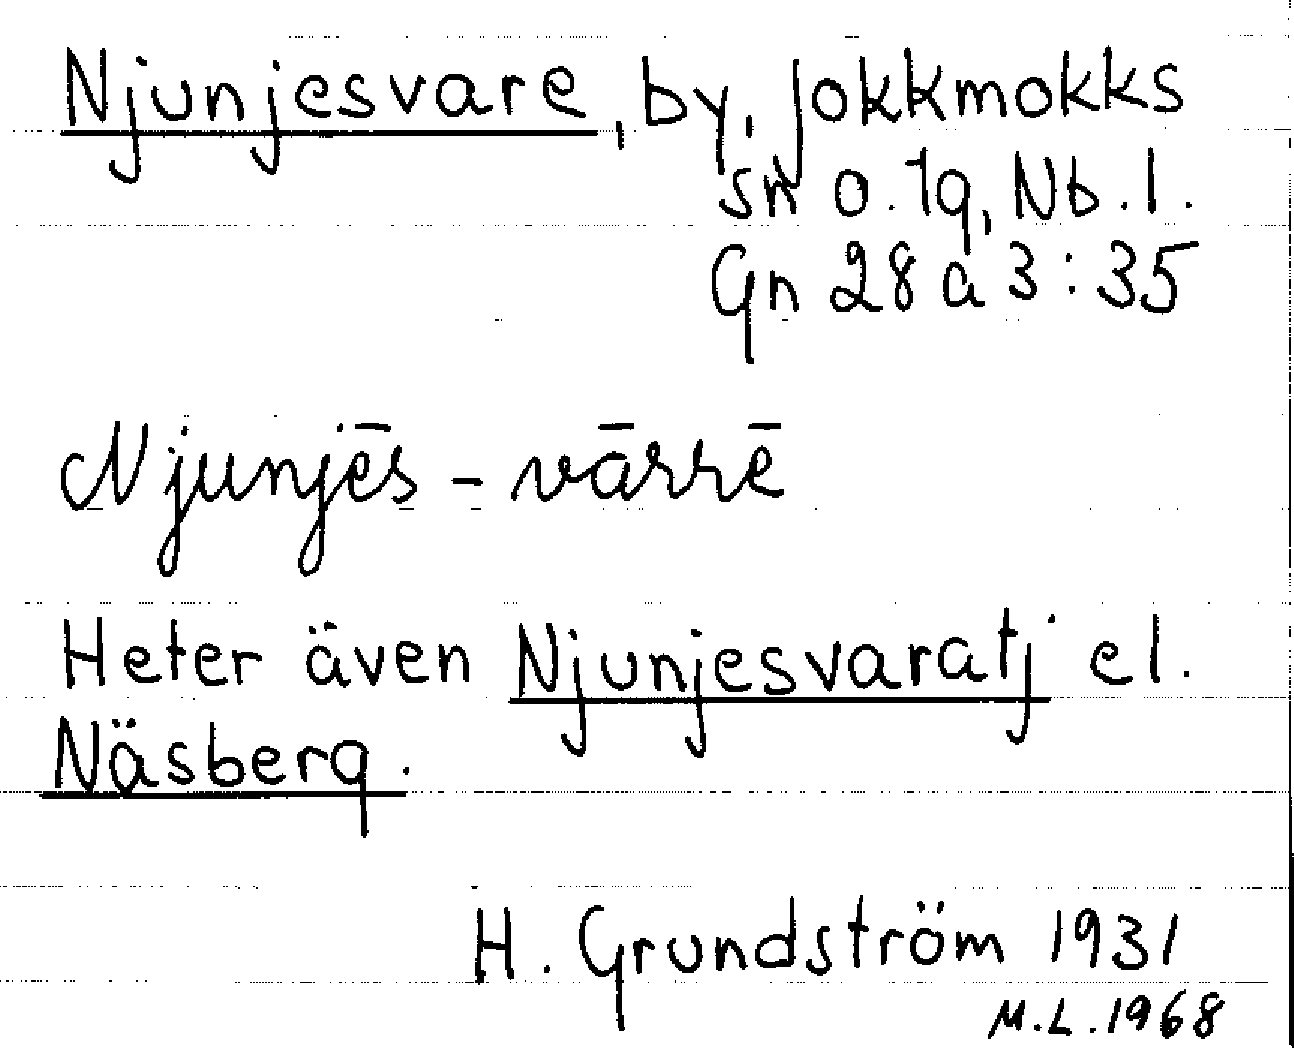 Njunjesvare, by, Jokkmokks
sn o. lg, Nb. l.
Gn 28 a 3 : 35
Njunjēs - vārrē
Heter även Njunjesvaratj el.
Näsberg.
H. Grundström 1931
M.L. 1968